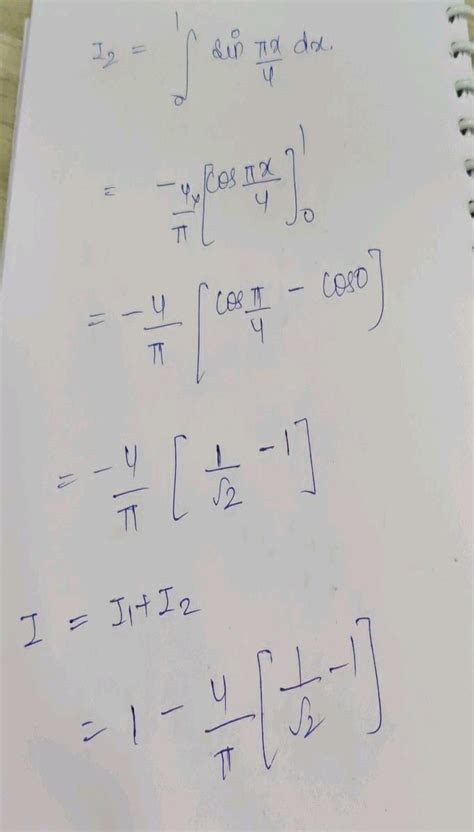 I₂ = ∫₀¹ sin πx/4 dx.
= -4/π [cos πx/4]₀¹
= -4/π [cos π/4 - cos0]
= -4/π [1/√2 - 1]
I = I₁+I₂
= 1 - 4/π [1/√2 - 1]